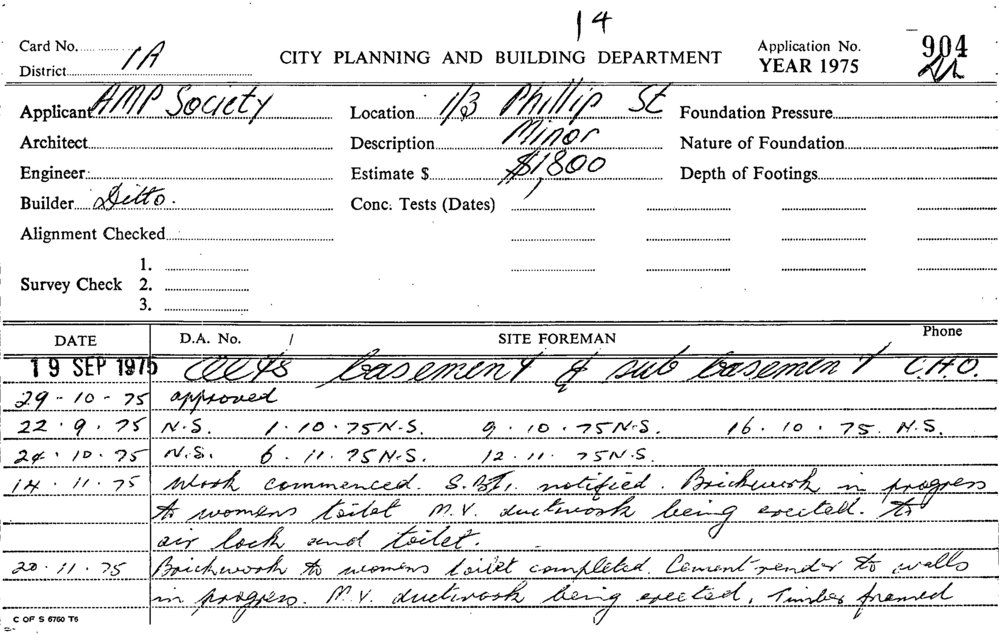 14
Card No. 1A
District
CITY PLANNING AND BUILDING DEPARTMENT
Application No. 904
YEAR 1975
Applicant AMP Society
Location 1/3 Phillip St
Foundation Pressure
Architect
Description Minor
Nature of Foundation
Engineer
Estimate $ $1,800
Depth of Footings
Builder Ditto.
Conc. Tests (Dates)
Alignment Checked
Survey Check 1.
2.
3.
DATE D.A. No. SITE FOREMAN Phone
19 SEP 1975 basement & sub basement C.H.O.
29-10-75 approved
22.9.75 N.S. 1.10.75 N.S. 9.10.75 N.S. 16.10.75. N.S.
24.10.75 N.S. 6.11.75 N.S. 12.11.75 N.S.
14.11.75 Work commenced. notified. Brickwork in progress
to womens toilet M.V. ductwork being erected. to
air lock and toilet.
20.11.75 Brickwork to womens toilet completed. Cement render to walls
in progress. M.V. ductwork being erected, Timber framed
C OF S 6760 T6